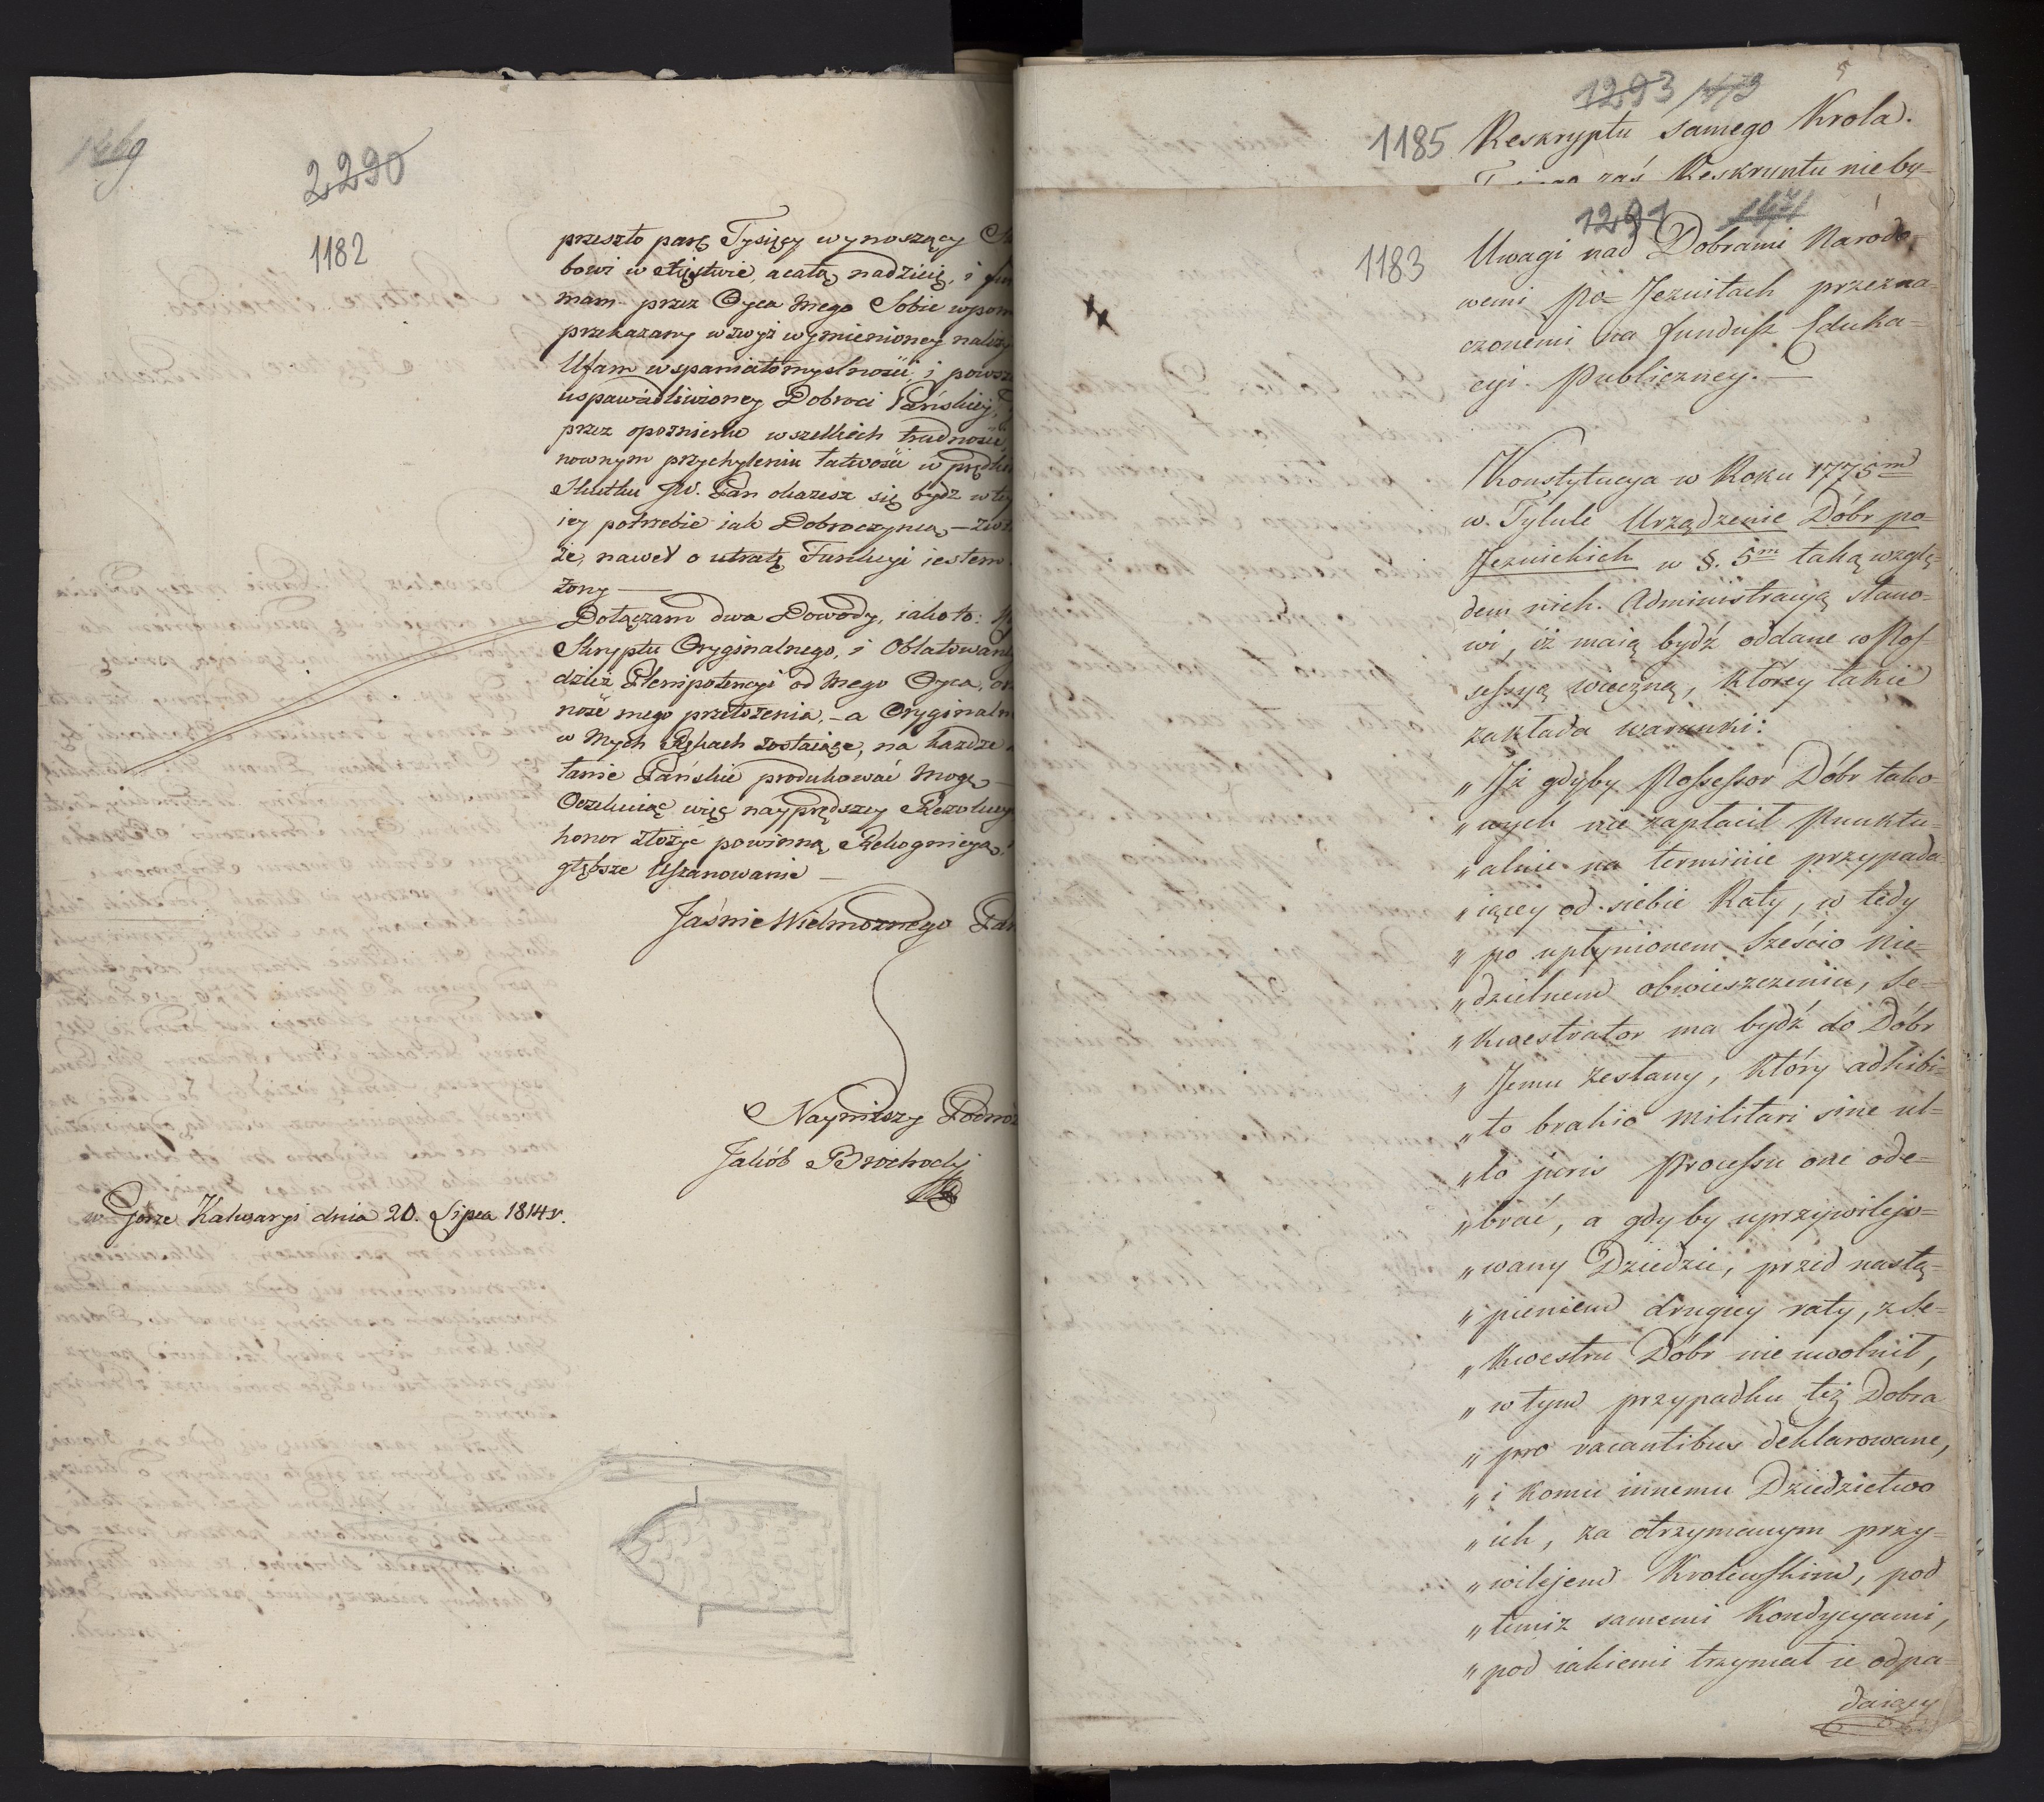 1269
2290
1182
przeszło parę Tysięcy wynoszący
bowi w Xięstwie, a całą nadzieię, i
mam przez Oyca mego Sobie
przekazany wzwyż wymienioney
Ufam wspaniałomyslności, i
uspawiedliwioney Dobroci Pańskiey,
przez wszelkich trudności
nownym przychyleniu łatwości w
Skutku JW. Pan okażesz się bydz w
iey potrzebie iak Dobroczyńca, —
że, nawet o utratę Funkcyi iestem
żony —
Dołączam dwa Dowody, iako to:
Skryptu Oryginalnego, i Oblatowan
dzież Plenipotencyi od mego Oyca,
ność mego przełożenia, — a
w mych Rękach zostaiące, na każde
łanie Pańskie produkować mogę —
Oczekuiąc więc nayprędszey
honor złożyć powinną Rekognicyą,
głębsze Uszanowanie —
Jaśnie Wielmożnego
Nayniższy
Jakób Brochocki
w Gorze Kalwaryi dnia 20. Lipca 1814 r.
5
1293 1473
1185 Reskryptu samego Krola.
zaś Reskryptu nie by=
1291 1471
1183 Uwagi nad Dobrami Narodo=
wemi po=Jezuitach przezna=
czonemi na fundusz Eduka=
cyi Publiczney. —
Konstytucya w Roku 1775m
w. Tytule Urządzenie Dóbr po=
Jezuickich w §. 5m taką wzglę=
dem nich Administracyą stano=
wi, iż maią bydź oddane w Pos=
sessyą wieczną, którey takie
zakłada warunki:
„ Iż gdyby Possessor Dóbr tako=
„ wych nie zapłacił Punktu=
„ alnie na terminie przypada=
„ iącey od siebie Raty, w tedy
„ po upłynionem Sześcio nie=
„ dzielnem obwieszczeniu, Se=
„ kwestrator ma bydź do Dóbr
„ Jemu zesłany, który adhibi=
„ to brahio militari sine ul=
„ lo juris Processu one ode=
„ brać, a gdy by uprzywilejo=
„ wany Dziedzic, przed nastą=
„ pieniem drugiey raty, z Se=
„ kwestru Dóbr nie uwolnił,
„ w tym przypadku też Dobra
„ pro vacantibus deklarowane,
„ i komu innemu Dziedzictwo
„ ich, za otrzymanym przy=
„ wilejem Krolewskim, pod
„ temiż samemi Kondycyami,
„ pod iakiemi trzymał ie odpa=
daiący